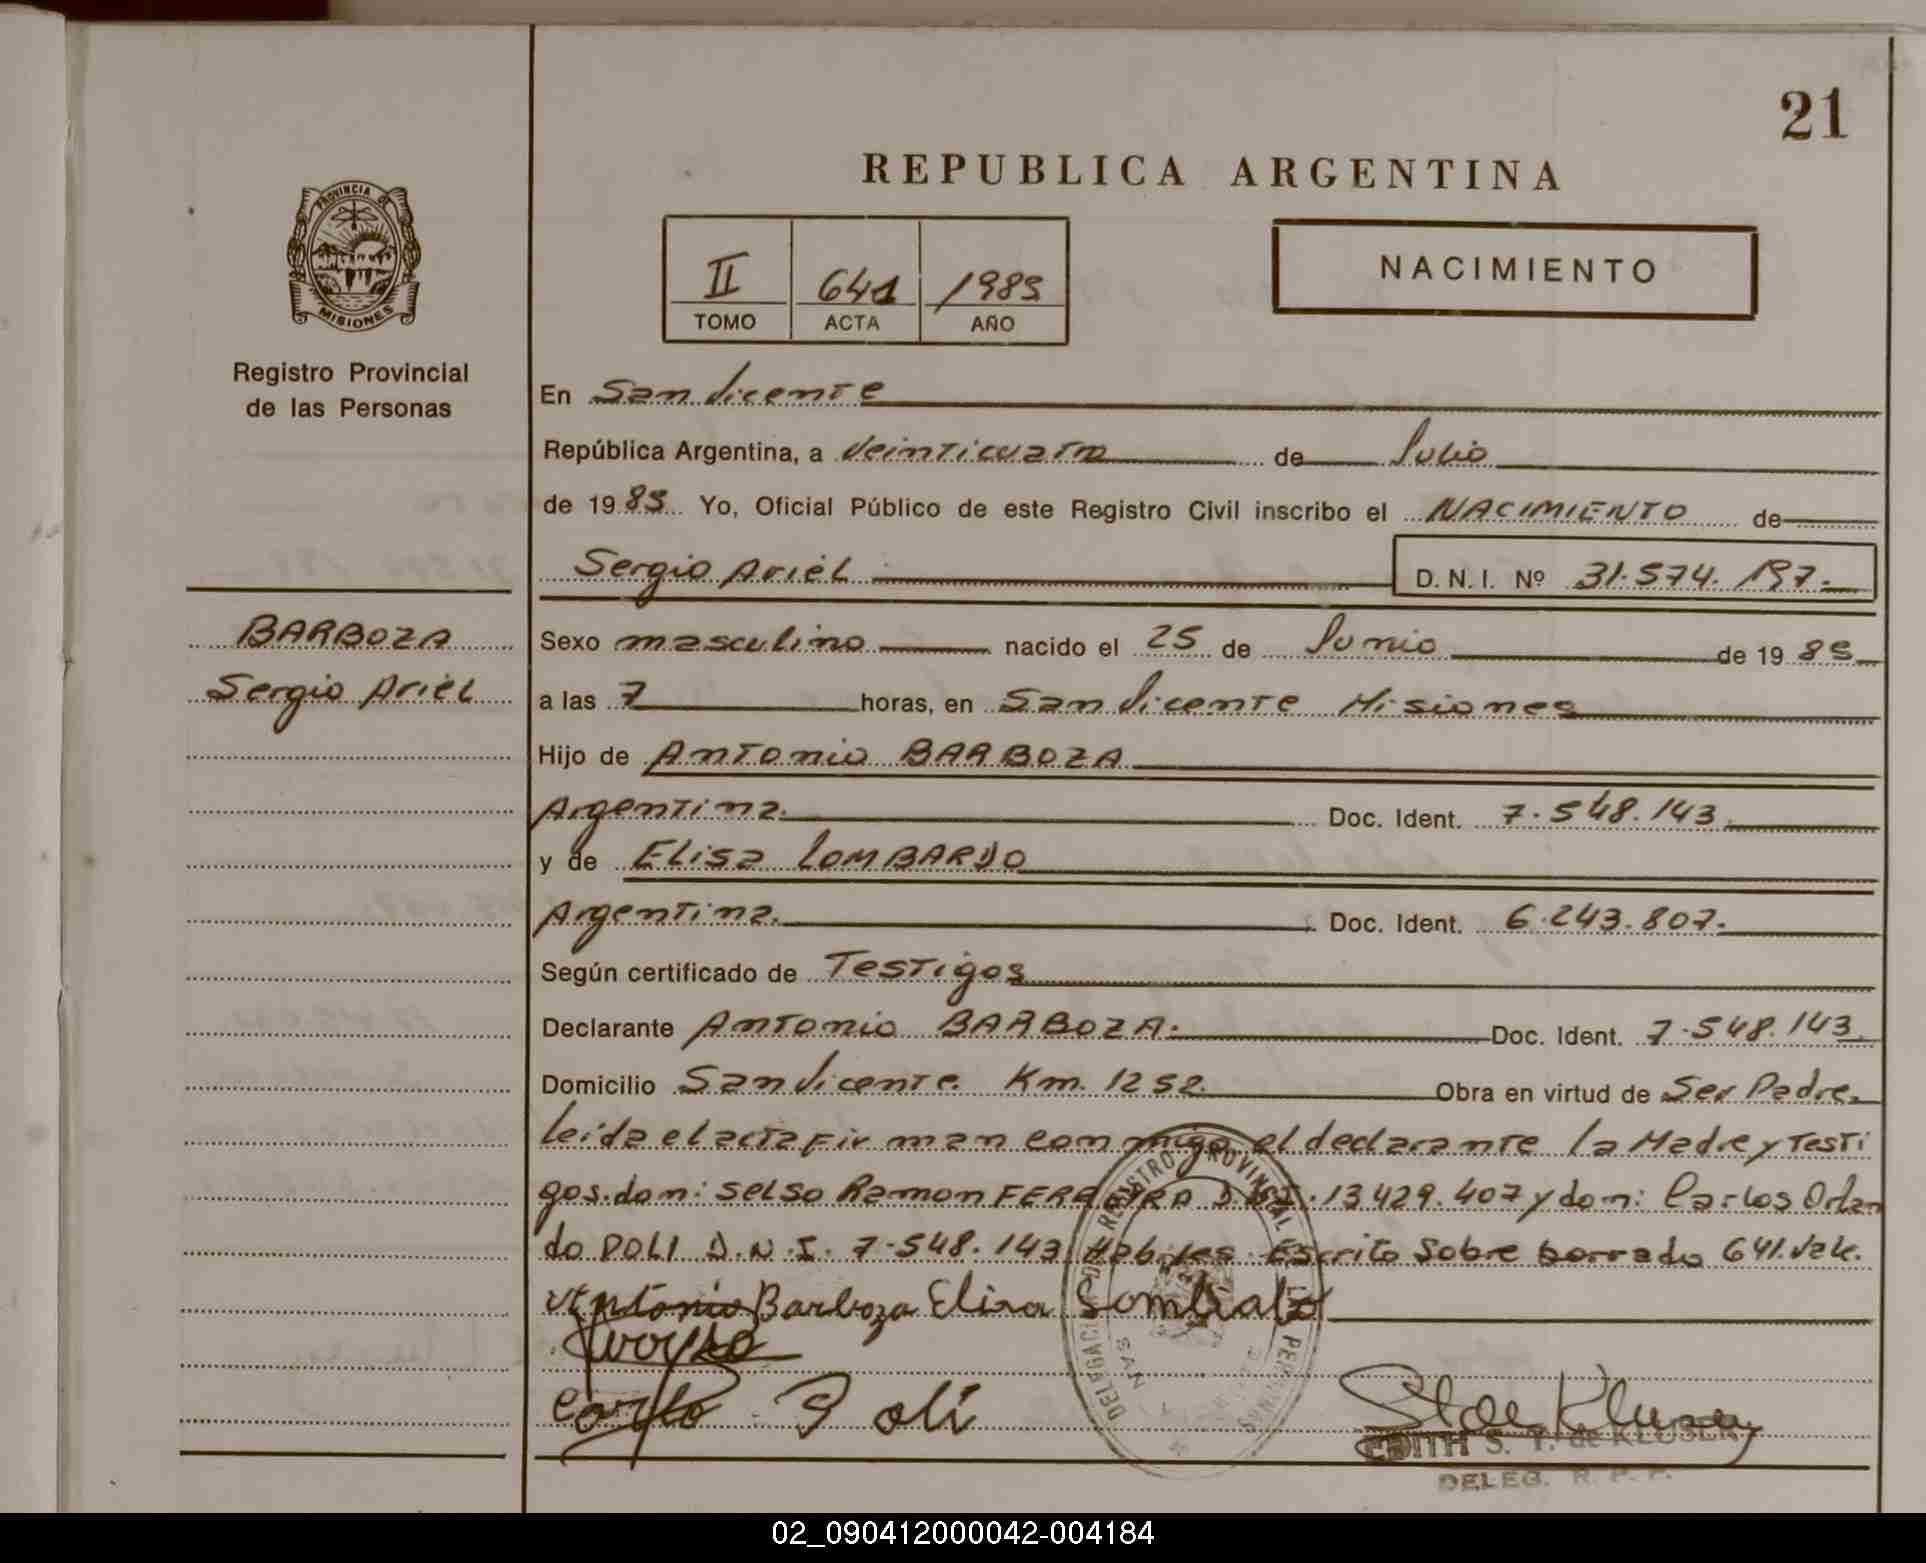 21
REPUBLICA ARGENTINA
PROVINCIA DE
MISIONES
Registro Provincial
de las Personas
II 641 1985
TOMO ACTA AÑO
NACIMIENTO
En San Vicente
República Argentina, a Veinticuatro de Julio
de 1985 Yo, Oficial Público de este Registro Civil inscribo el NACIMIENTO de
Sergio Ariel D.N.I. Nº 31.574.197.
BARBOZA
Sergio Ariel
Sexo masculino nacido el 25 de Junio de 1985
a las 7 horas, en San Vicente Misiones
Hijo de Antonio BARBOZA
Argentina. Doc. Ident. 7.548.143
y de Elisa LOMBARDO
Argentina. Doc. Ident. 6.243.807.
Según certificado de Testigos
Declarante Antonio BARBOZA. Doc. Ident. 7.548.143
Domicilio San Vicente. Km. 1252 Obra en virtud de Ser Padre.
Leida el acta firman conmigo el declarante la Madre y Testi
gos.don: Selso Ramon FERREYRA D.N.I. 13429.407 y don: Carlos Orlan
do POLI D.N.I. 7.548.143 Habiles Escrito Sobre borrado 641.Vale.
Antonio Barboza Elisa Sombrato
Carlo Poli
DELEGACION REGISTRO PROVINCIAL PERSONAS
SAN
EDITH S. T. de KLUSER
DELEG. R. P. P.
02_090412000042-004184